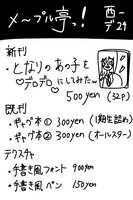 メ〜プル亭っ!
西一
デ29
新刊
・となりのあの子を
♡デロデロ♡にしてみた
500yen (32P)
既刊
・ギャグ本① 300yen (1期生詰め)
・ギャグ本② 300yen (オールスター)
テクスチャ
・手書き風フォント 900yen
・手書き風ペン 150yen